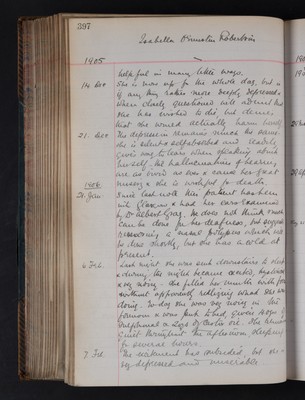 397
Isabella Robertson
1905
helpful in many little ways.
14 Dec She is now up for the whole day, but is
if any thing rather more deeply depressed.
When closely questioned will admit that
she has wished to die, but denies
that she would actually harm herself.
21. Dec. The depression remains much the same.
she is silent & self absorbed and readily
gives way to tears when speaking about
herself. Her hallucinations of hearing,
are as vivid as ever & cause her great
misery & she is wishful for death.
1906.
21. Jan. Since last note this patient has been
into Glasgow & had her ears examined
by Dr Albert Gray. He does not think much
can be done for her deafness, but suggests
removing nasal polypus which will
be done shortly, but she has a cold at
present.
6 Feb. Last night she was sent downstairs to sleep
& during the night became excited,
& very noisy. She filled her mouth with
without apparently realizing what she was
doing. To-day she was very noisy in the
forenoon & was put to bed, given 20 grs of
Sulphonal & Castor oil. She
quiet throughout the afternoon, sleeping
for several hours.
7 Feb The excitement has subsided, but she is
very depressed and miserable.